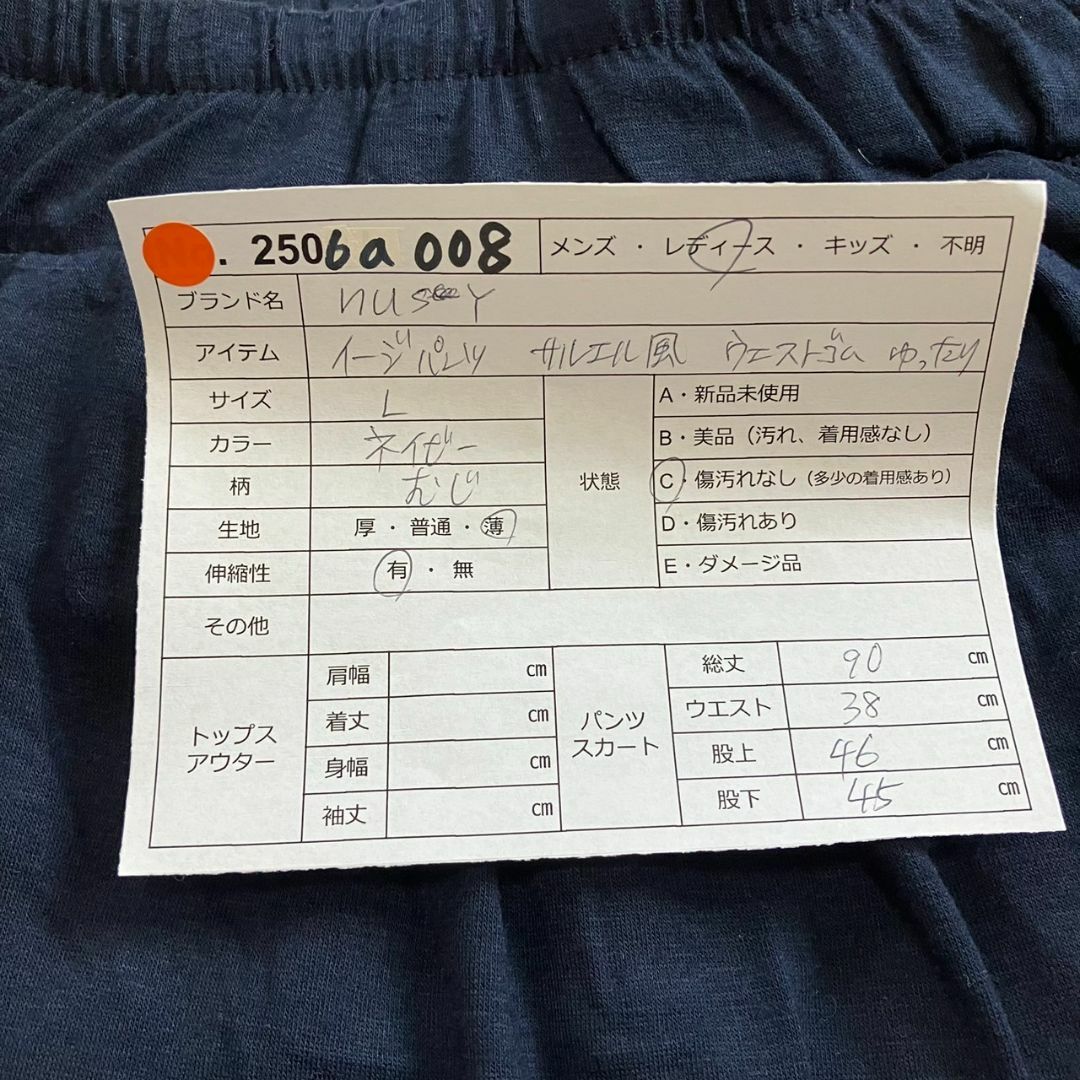 . 2506a008 メンズ ・ レディース ・ キッズ ・ 不明
ブランド名
アイテム イージパンツ サルエル風 ウエストゴム ゆったり
サイズ L
カラー ネイビー
柄 むじ
生地 厚 ・ 普通 ・ 薄
伸縮性 有 ・ 無
その他
状態
A・新品未使用
B・美品(汚れ、着用感なし)
C・傷汚れなし(多少の着用感あり)
D・傷汚れあり
E・ダメージ品
トップス
アウター
肩幅 cm
着丈 cm
身幅 cm
袖丈 cm
パンツ
スカート
総丈 90 cm
ウエスト 38 cm
股上 46 cm
股下 45 cm